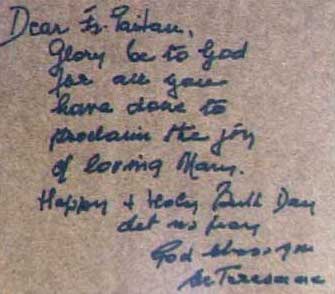 Dear Fr. Gaitan,
Glory be to God
for all you
have done to
proclaim the joy
of loving Mary.
Happy + Holy Birth Day
Let us pray
God bless you
M Teresa mc